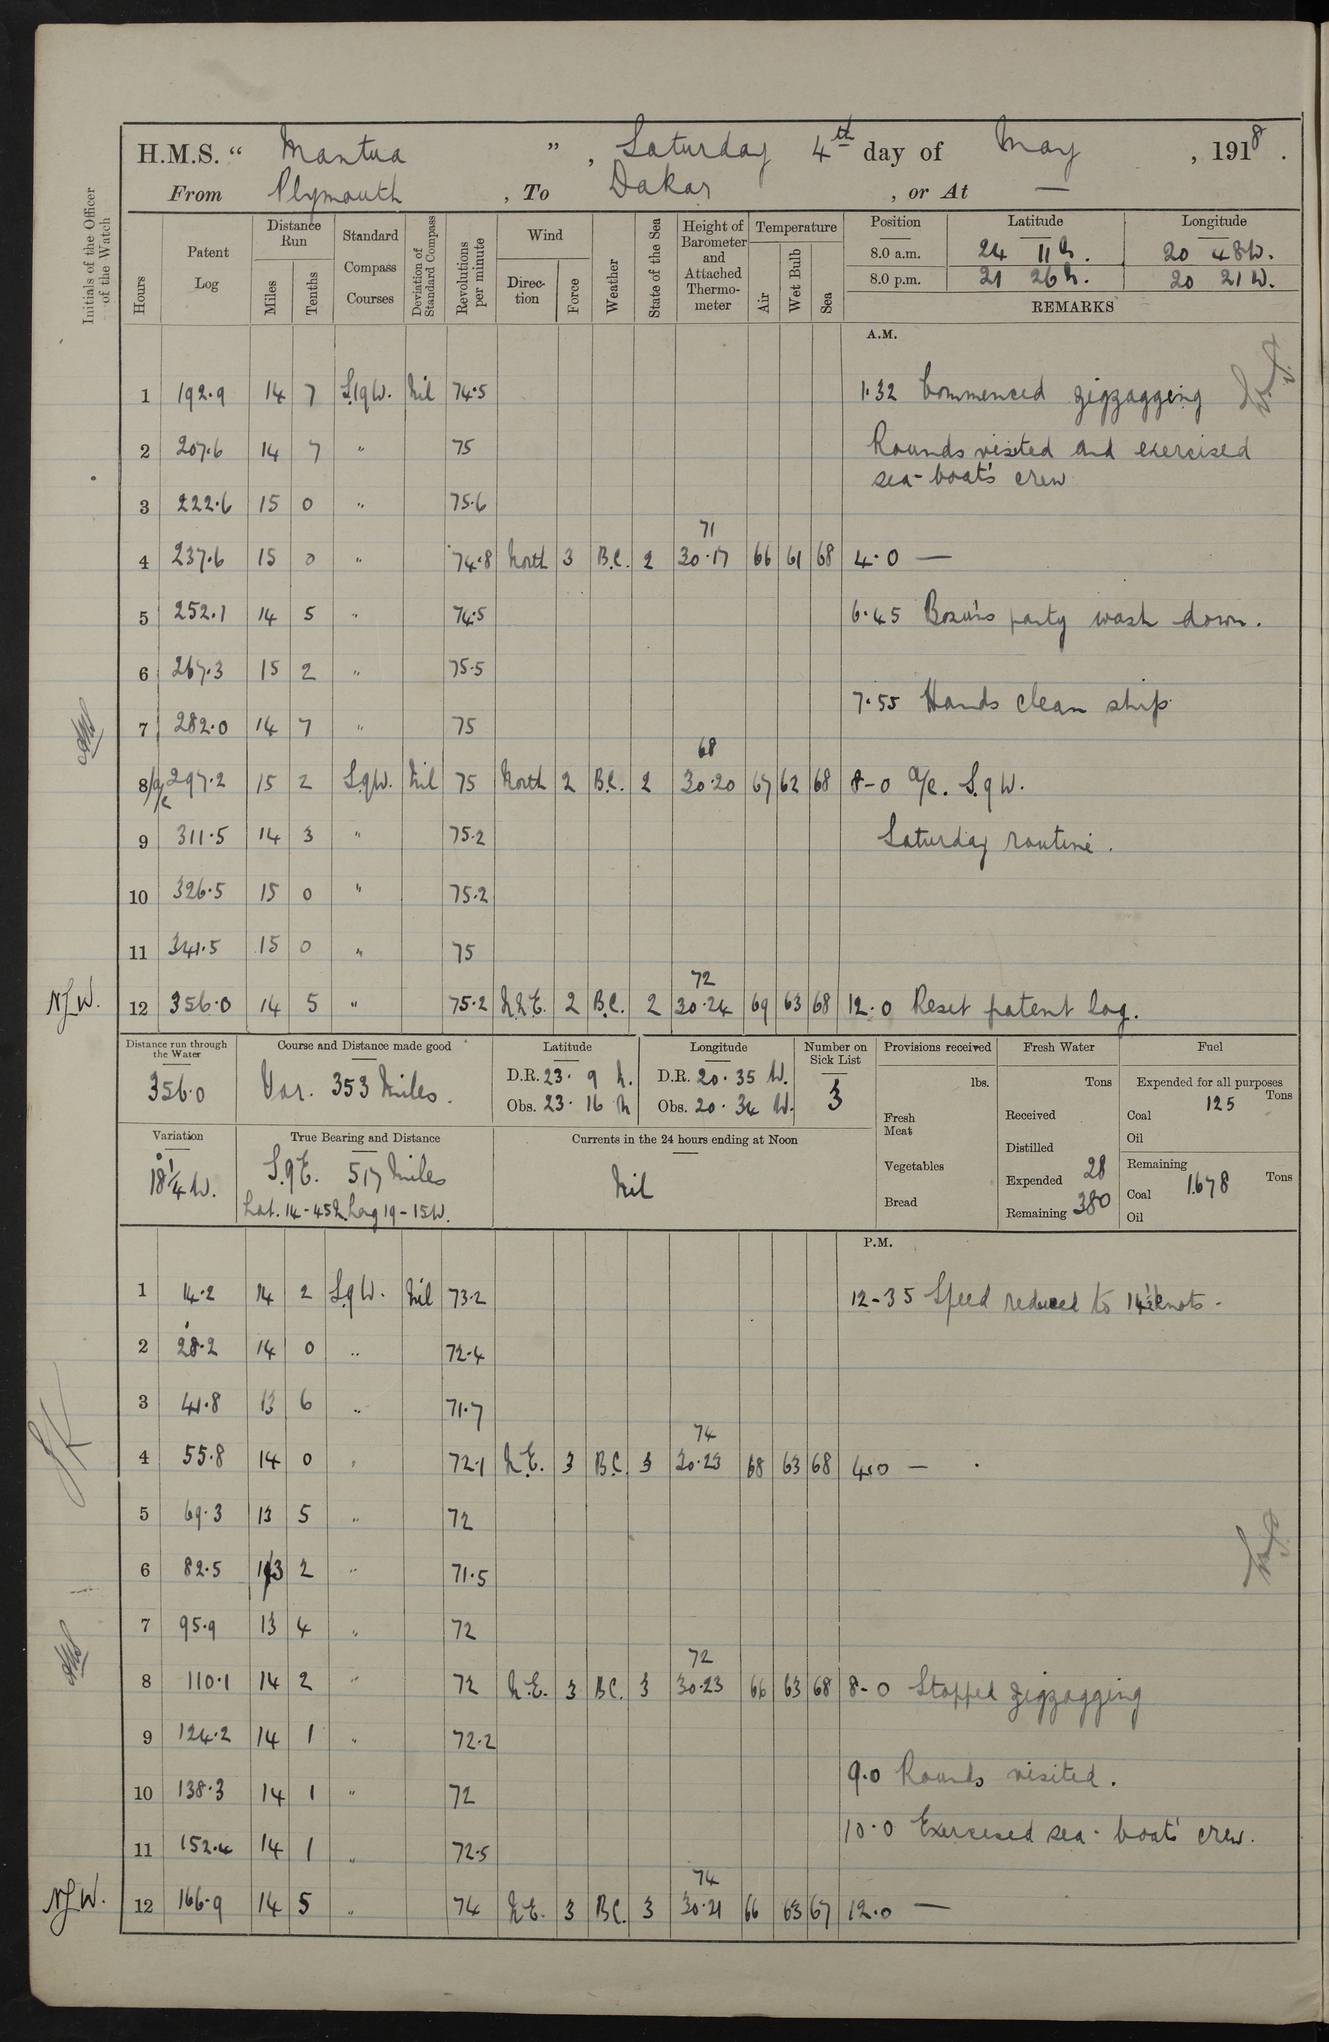 H.M.S. “ Mantua ” , Saturday 4th day of May , 1918 .
From Plymouth , To Dakar , or At —
Initials of the Officer of the Watch
Hours
Patent Log
Distance Run
Miles
Tenths
Standard Compass Courses
Deviation of Standard Compass
Revolutions per minute
Wind
Direction
Force
Weather
State of the Sea
Height of Barometer and Attached Thermometer
Temperature
Air
Wet Bulb
Sea
Position
Latitude
Longitude
8.0 a.m. 24 11 N. 20 48 W.
8.0 p.m. 21 26 N. 20 21 W.
REMARKS
A.M.
1 192.9 14 7 S.19W. Nil 74.5 1.32 Commenced zigzagging
2 207.6 14 7 " 75 Rounds visited and exercised
sea-boat's crew
3 222.6 15 0 " 75.6
71
4 237.6 15 0 " 74.8 North 3 B.C. 2 30.17 66 61 68 4.0 —
5 252.1 14 5 " 74.5 6.45 Bosun's party wash down.
6 267.3 15 2 " 75.5
7.55 Hands clean ship.
7 282.0 14 7 " 75
68
8 a/c 297.2 15 2 S.9W. Nil 75 North 2 B.C. 2 30.20 67 62 68 8-0 a/c. S.9W.
9 311.5 14 3 " 75.2 Saturday routine.
10 326.5 15 0 " 75.2
11 341.5 15 0 " 75
72
N.J.W. 12 356.0 14 5 " 75.2 N.N.E. 2 B.C. 2 30.24 69 63 68 12.0 Reset patent log.
Distance run through the Water
356.0
Course and Distance made good
Var. 353 Miles.
Latitude
D.R. 23. 9 N.
Obs. 23. 16 N
Longitude
D.R. 20. 35 W.
Obs. 20. 34 W.
Number on Sick List
3
Provisions received
lbs.
Fresh Meat
Vegetables
Bread
Fresh Water
Tons
Received
Distilled
Expended 28
Remaining 380
Fuel
Expended for all purposes
Tons
Coal 125
Oil
Remaining
Coal 1678 Tons
Oil
Variation
18 1/4° W.
True Bearing and Distance
S.9E. 517 Miles
Lat. 14-45N. Long 19-15W.
Currents in the 24 hours ending at Noon
Nil
P.M.
1 14.2 14 2 S.9W. Nil 73.2 12-35 Speed reduced to 14 1/2 knots.
2 28.2 14 0 " 72.4
3 41.8 13 6 " 71.7
74
4 55.8 14 0 " 72.1 N.E. 3 B.C. 3 30.23 68 63 68 4.0 —
5 69.3 13 5 " 72
6 82.5 13 2 " 71.5
7 95.9 13 4 " 72
72
8 110.1 14 2 " 72 N.E. 3 B.C. 3 30.23 66 63 68 8-0 Stopped zigzagging
9 124.2 14 1 " 72.2
9.0 Rounds visited.
10 138.3 14 1 " 72
10.0 Exercised sea-boat's crew.
11 152.4 14 1 " 72.5
74
N.J.W. 12 166.9 14 5 " 74 N.E. 3 B.C. 3 30.21 66 63 67 12.0 —